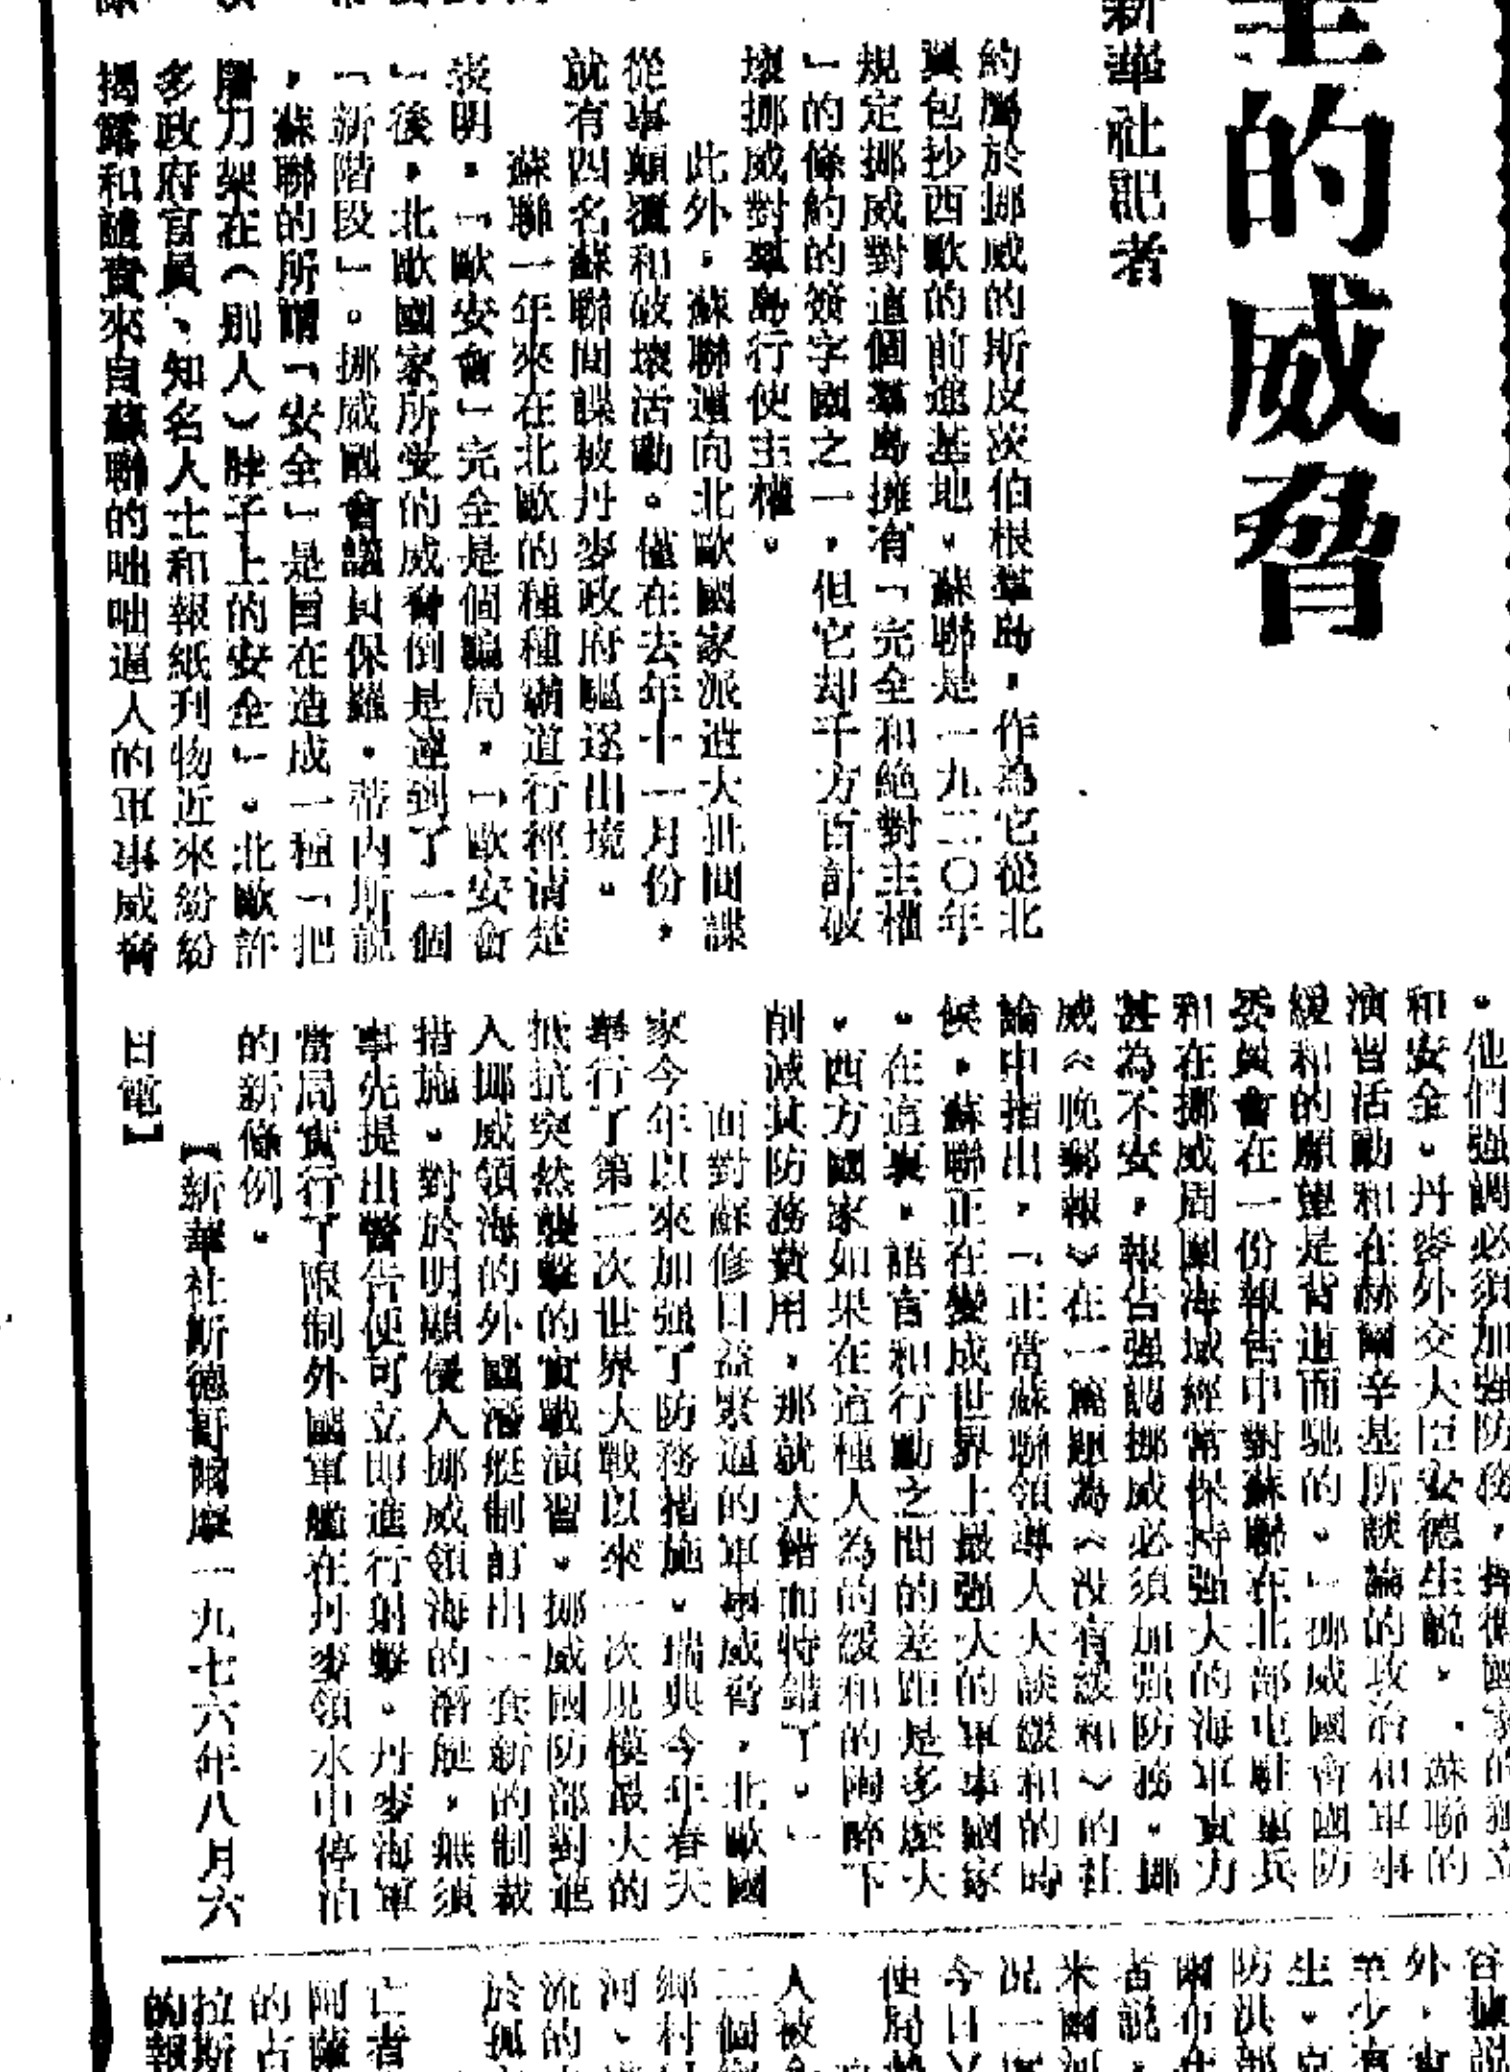 全的威脅
新華社記者
約屬於挪威的斯皮茨伯根羣島，作為它從北
翼包抄西歐的前進基地。蘇聯是一九二〇年
規定挪威對這個羣島擁有「完全和絕對主權
」的條約的簽字國之一，但它却千方百計破
壞挪威對羣島行使主權。
此外，蘇聯還向北歐國家派進大批間諜
從事顛覆和破壞活動。僅在去年十一月份，
就有四名蘇聯間諜被丹麥政府驅逐出境。
蘇聯一年來在北歐的種種霸道行徑清楚
表明，「歐安會」完全是個騙局，「歐安會
」後，北歐國家所受的威脅倒是達到了一個
「新階段」。挪威國會議員保羅·蒂內斯說
，蘇聯的所謂「安全」是旨在造成一種「把
屠刀架在（別人）脖子上的安全」。北歐許
多政府官員、知名人士和報紙刊物近來紛紛
揭露和譴責來自蘇聯的咄咄逼人的軍事威脅
。他們强調必須加强防務，捍衛國家的獨立
和安全。丹麥外交大臣安德生說，蘇聯的
演習活動和在赫爾辛基所談論的政治和軍事
緩和的願望是背道而馳的。」挪威國會國防
委員會在一份報告中對蘇聯在北部屯駐重兵
和在挪威周圍海域經常保持强大的海軍實力
甚為不安，報告强調挪威必須加强防務。挪
威《晚郵報》在一篇題為《没有緩和》的社
論中指出，「正當蘇聯領導人大談緩和的時
候，蘇聯正在變成世界上最强大的軍事國家
。在這裏，語言和行動之間的差距是多麼大
。西方國家如果在這種人為的緩和的陶醉下
削減其防務費用，那就大錯而特錯了。」
面對蘇修日益緊逼的軍事威脅，北歐國
家今年以來加强了防務措施。瑞典今年春天
舉行了第二次世界大戰以來一次規模最大的
抵抗突然襲擊的實戰演習。挪威國防部對進
入挪威領海的外國潛艇制訂出一套新的制裁
措施。對於明顯侵入挪威領海的潛艇，無須
事先提出警告便可立即進行射擊。丹麥海軍
當局實行了限制外國軍艦在丹麥領水中停泊
的新條例。
【新華社斯德哥爾摩一九七六年八月六
日電】
外，
生，
防洪部
者說，
米爾河
況一
今日
使局
人被
二個
鄉村
河、
流的
於
亡者
阿薩
的占
拉斯
的報